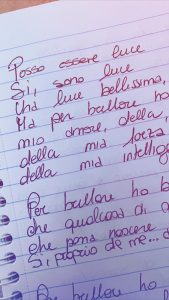 Posso essere luce
Sì, sono luce
Una luce bellissima,
Ma per brillare ho
mio amore, della
della mia forza
della mia intellig
Per brillare ho b
che qualcosa di
che possa nascere
Sì, proprio de me...
Per brillare ho